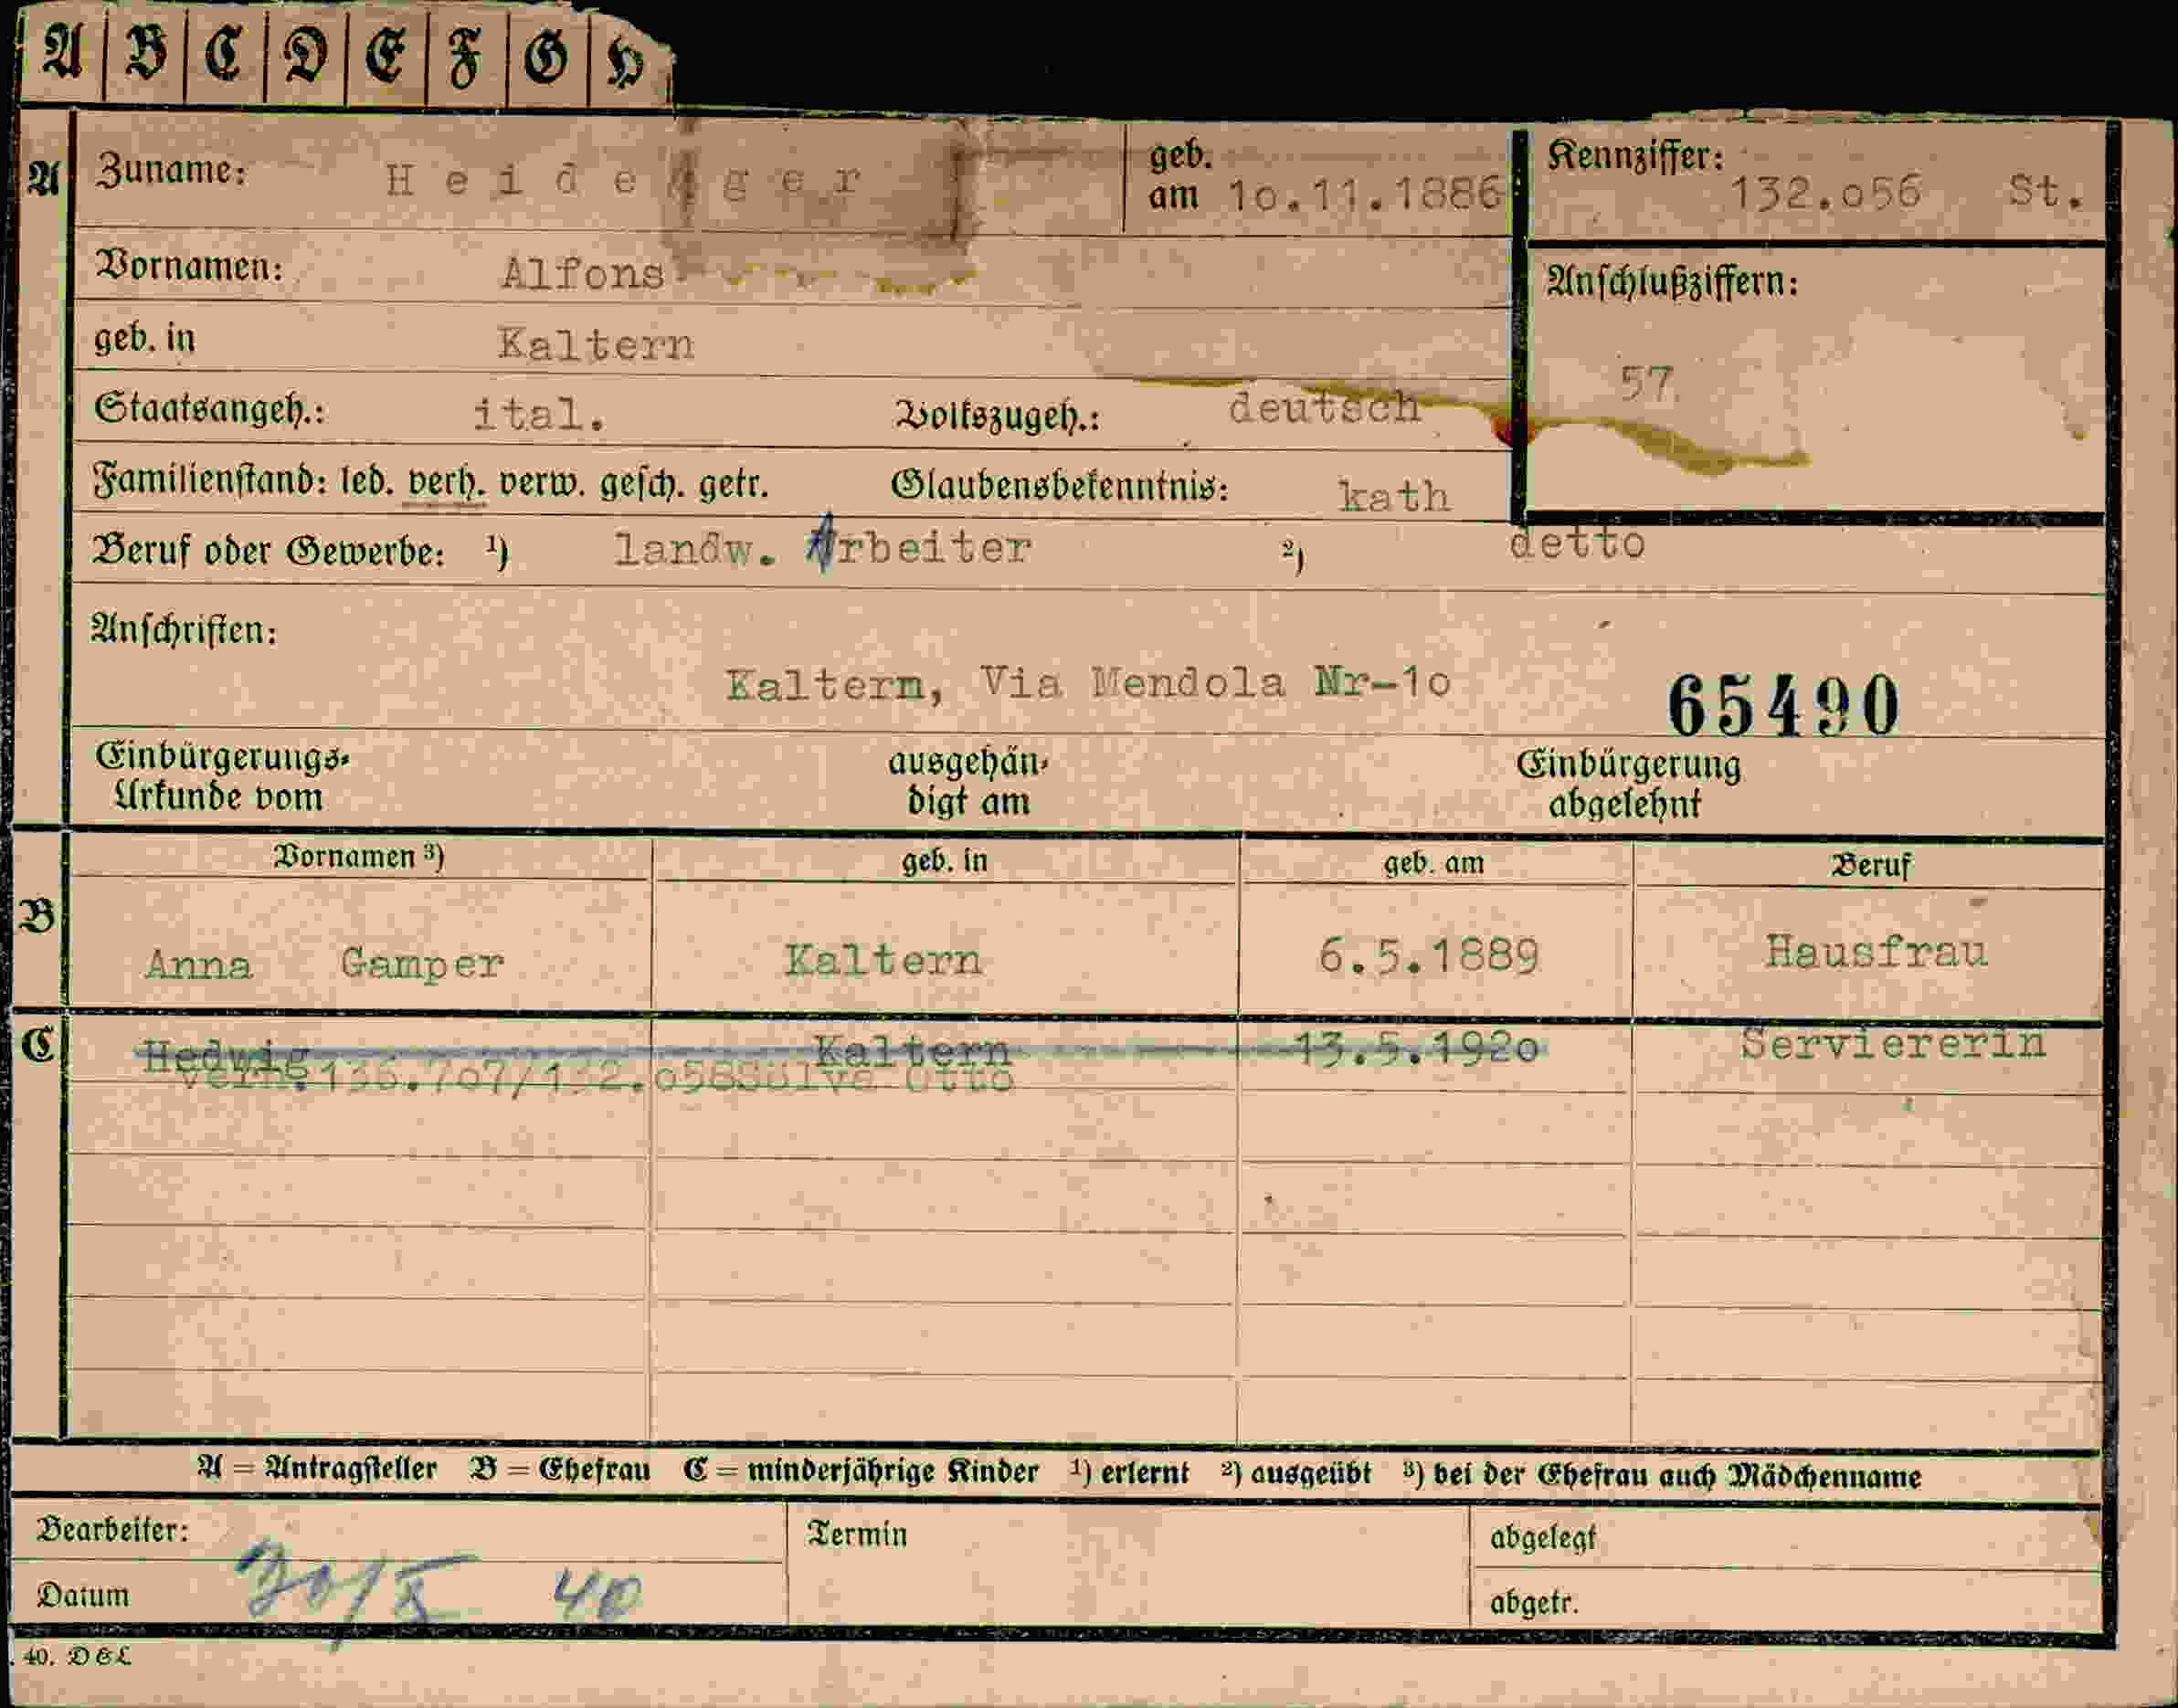 A B C D E F G H
A Zuname: Heidegger geb. am 10.11.1886 Kennziffer: 132.056 St.
Vornamen: Alfons
Anschlußziffern:
geb. in Kaltern
57
Staatsangeh.: ital. Volkszugeh.: deutsch
Familienstand: led. verh. verw. gesch. getr. Glaubensbekenntnis: kath
Beruf oder Gewerbe: ¹) landw. Arbeiter ²) detto
Anschriften:
Kaltern, Via Mendola Nr-10
65490
Einbürgerungs-Urkunde vom ausgehändigt am Einbürgerung abgelehnt
Vornamen ³) geb. in geb. am Beruf
B Anna Gamper Kaltern 6.5.1889 Hausfrau
C Hedwig Kaltern 13.5.1920 Serviererin
verh. 136.707/132.058 Otto
A = Antragsteller B = Ehefrau C = minderjährige Kinder ¹) erlernt ²) ausgeübt ³) bei der Ehefrau auch Mädchenname
Bearbeiter: Termin abgelegt
Datum 30/X 40 abgetr.
40. DEL